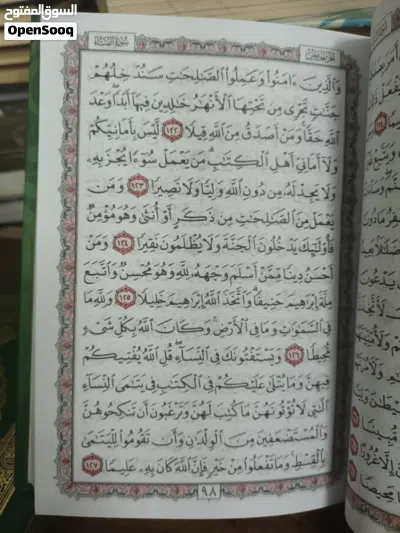 السوق المفتوح
OpenSooq
سورة النساء
وَٱلَّذِينَ ءَامَنُوا۟ وَعَمِلُوا۟ ٱلصَّـٰلِحَـٰتِ سَنُدْخِلُهُمْ
جَنَّـٰتٍ تَجْرِى مِن تَحْتِهَا ٱلْأَنْهَـٰرُ خَـٰلِدِينَ فِيهَآ أَبَدًا وَعْدَ
ٱللَّهِ حَقًّا وَمَنْ أَصْدَقُ مِنَ ٱللَّهِ قِيلًا ١٢٢ لَّيْسَ بِأَمَانِيِّكُمْ
وَلَآ أَمَانِىِّ أَهْلِ ٱلْكِتَـٰبِ مَن يَعْمَلْ سُوٓءًا يُجْزَ بِهِۦ
وَلَا يَجِدْ لَهُۥ مِن دُونِ ٱللَّهِ وَلِيًّا وَلَا نَصِيرًا ١٢٣ وَمَن
يَعْمَلْ مِنَ ٱلصَّـٰلِحَـٰتِ مِن ذَكَرٍ أَوْ أُنثَىٰ وَهُوَ مُؤْمِنٌ
فَأُو۟لَـٰٓئِكَ يَدْخُلُونَ ٱلْجَنَّةَ وَلَا يُظْلَمُونَ نَقِيرًا ١٢٤ وَمَنْ
أَحْسَنُ دِينًا مِّمَّنْ أَسْلَمَ وَجْهَهُۥ لِلَّهِ وَهُوَ مُحْسِنٌ وَٱتَّبَعَ
مِلَّةَ إِبْرَٰهِيمَ حَنِيفًا وَٱتَّخَذَ ٱللَّهُ إِبْرَٰهِيمَ خَلِيلًا ١٢٥ وَلِلَّهِ مَا
فِى ٱلسَّمَـٰوَٰتِ وَمَا فِى ٱلْأَرْضِ وَكَانَ ٱللَّهُ بِكُلِّ شَىْءٍ
مُّحِيطًا ١٢٦ وَيَسْتَفْتُونَكَ فِى ٱلنِّسَآءِ قُلِ ٱللَّهُ يُفْتِيكُمْ
فِيهِنَّ وَمَا يُتْلَىٰ عَلَيْكُمْ فِى ٱلْكِتَـٰبِ فِى يَتَـٰمَى ٱلنِّسَآءِ
ٱلَّـٰتِى لَا تُؤْتُونَهُنَّ مَا كُتِبَ لَهُنَّ وَتَرْغَبُونَ أَن تَنكِحُوهُنَّ
وَٱلْمُسْتَضْعَفِينَ مِنَ ٱلْوِلْدَٰنِ وَأَن تَقُومُوا۟ لِلْيَتَـٰمَىٰ
بِٱلْقِسْطِ وَمَا تَفْعَلُوا۟ مِنْ خَيْرٍ فَإِنَّ ٱللَّهَ كَانَ بِهِۦ عَلِيمًا ١٢٧
٩٨